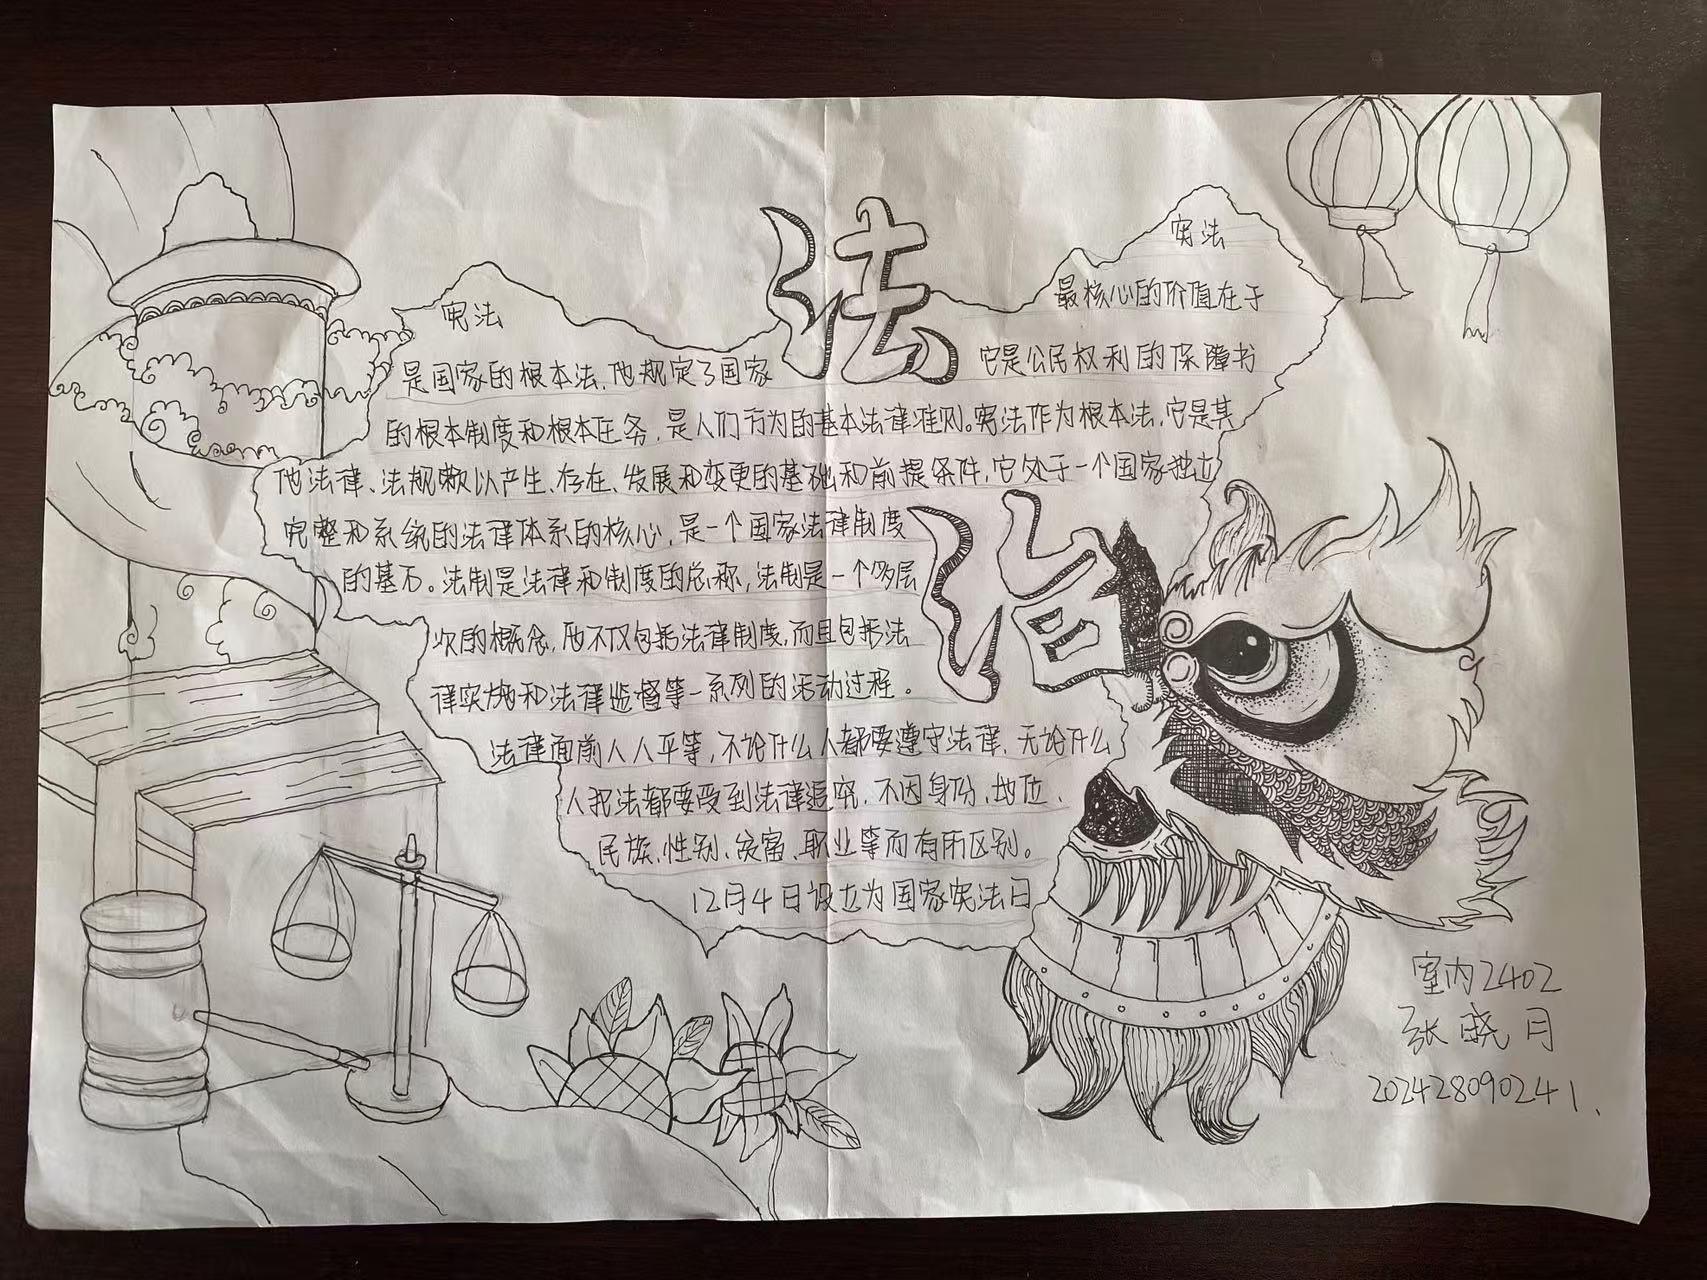 法治
宪法
宪法
最核心的价值在于
是国家的根本法,他规定了国家
它是公民权利的保障书
的根本制度和根本任务,是人们行为的基本法律准则。宪法作为根本法,它是其
他法律、法规赖以产生、存在、发展和变更的基础和前提条件,它处于一个国家独立
完整和系统的法律体系的核心,是一个国家法律制度
的基石。法制是法律和制度的总称,法制是一个多层
次的概念,他不仅包括法律制度,而且包括法
律实施和法律监督等一系列的活动过程。
法律面前人人平等,不论什么人都要遵守法律,无论什么
人犯法都要受到法律追究,不因身份、地位、
民族、性别、贫富、职业等而有所区别。
12月4日设立为国家宪法日
室内2402
张晓月
2024280902411.